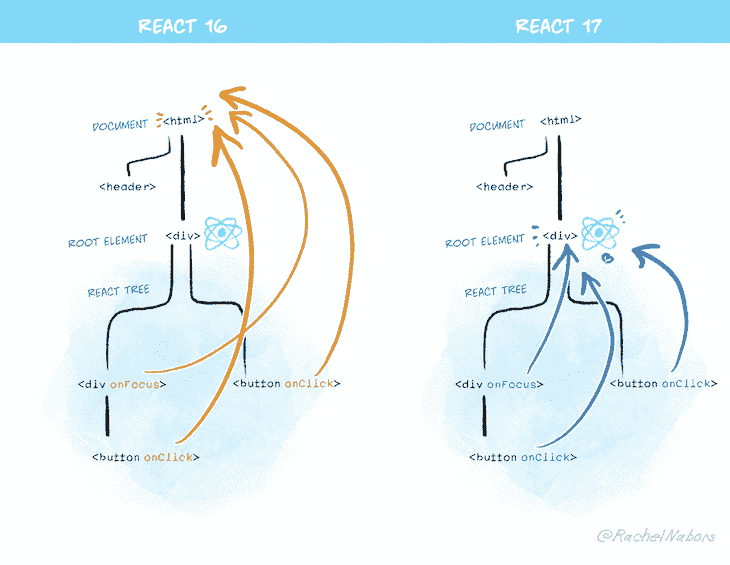 REACT 16
DOCUMENT <html>
<header>
ROOT ELEMENT <div>
REACT TREE
<div onFocus> <button onClick>
<button onClick>
REACT 17
DOCUMENT <html>
<header>
ROOT ELEMENT <div>
REACT TREE
<div onFocus> <button onClick>
<button onClick>
@RachelNabors